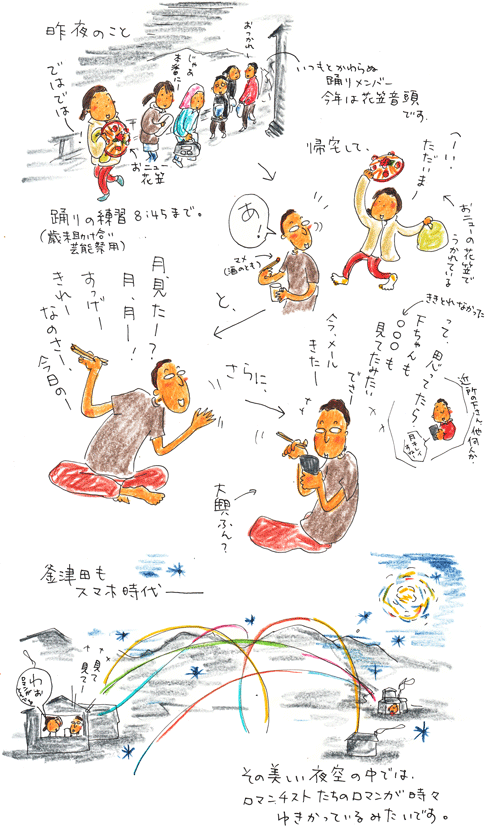 昨夜のこと
おつかれー
じゃあ
本番にー
ではではー
いつもとかわらぬ
踊りメンバー
今年は花笠音頭
です。
おニュー
花笠
踊りの練習8:45まで。
(歳末助け合い
芸能祭用)
帰宅して、
へーい、
ただいまー
おニューの花笠で
うかれている
あ!
マメ
(酒のとも)
と、
月、見たー?
月、月ー!
すっげー
きれー
なのさー、
今日のー
さらに、
今、メール
きたー
でゃー
見てみたい
〇〇〇も
Fちゃんも
って、思ってたら?
ききとれなかった
近所のFさん、他何人か?
大興ふん?
釜津田も
スマホ時代――
わぉ
見て
見て
その美しい夜空の中では、
ロマンチストたちのロマンが時々
ゆきかっているみたいです。